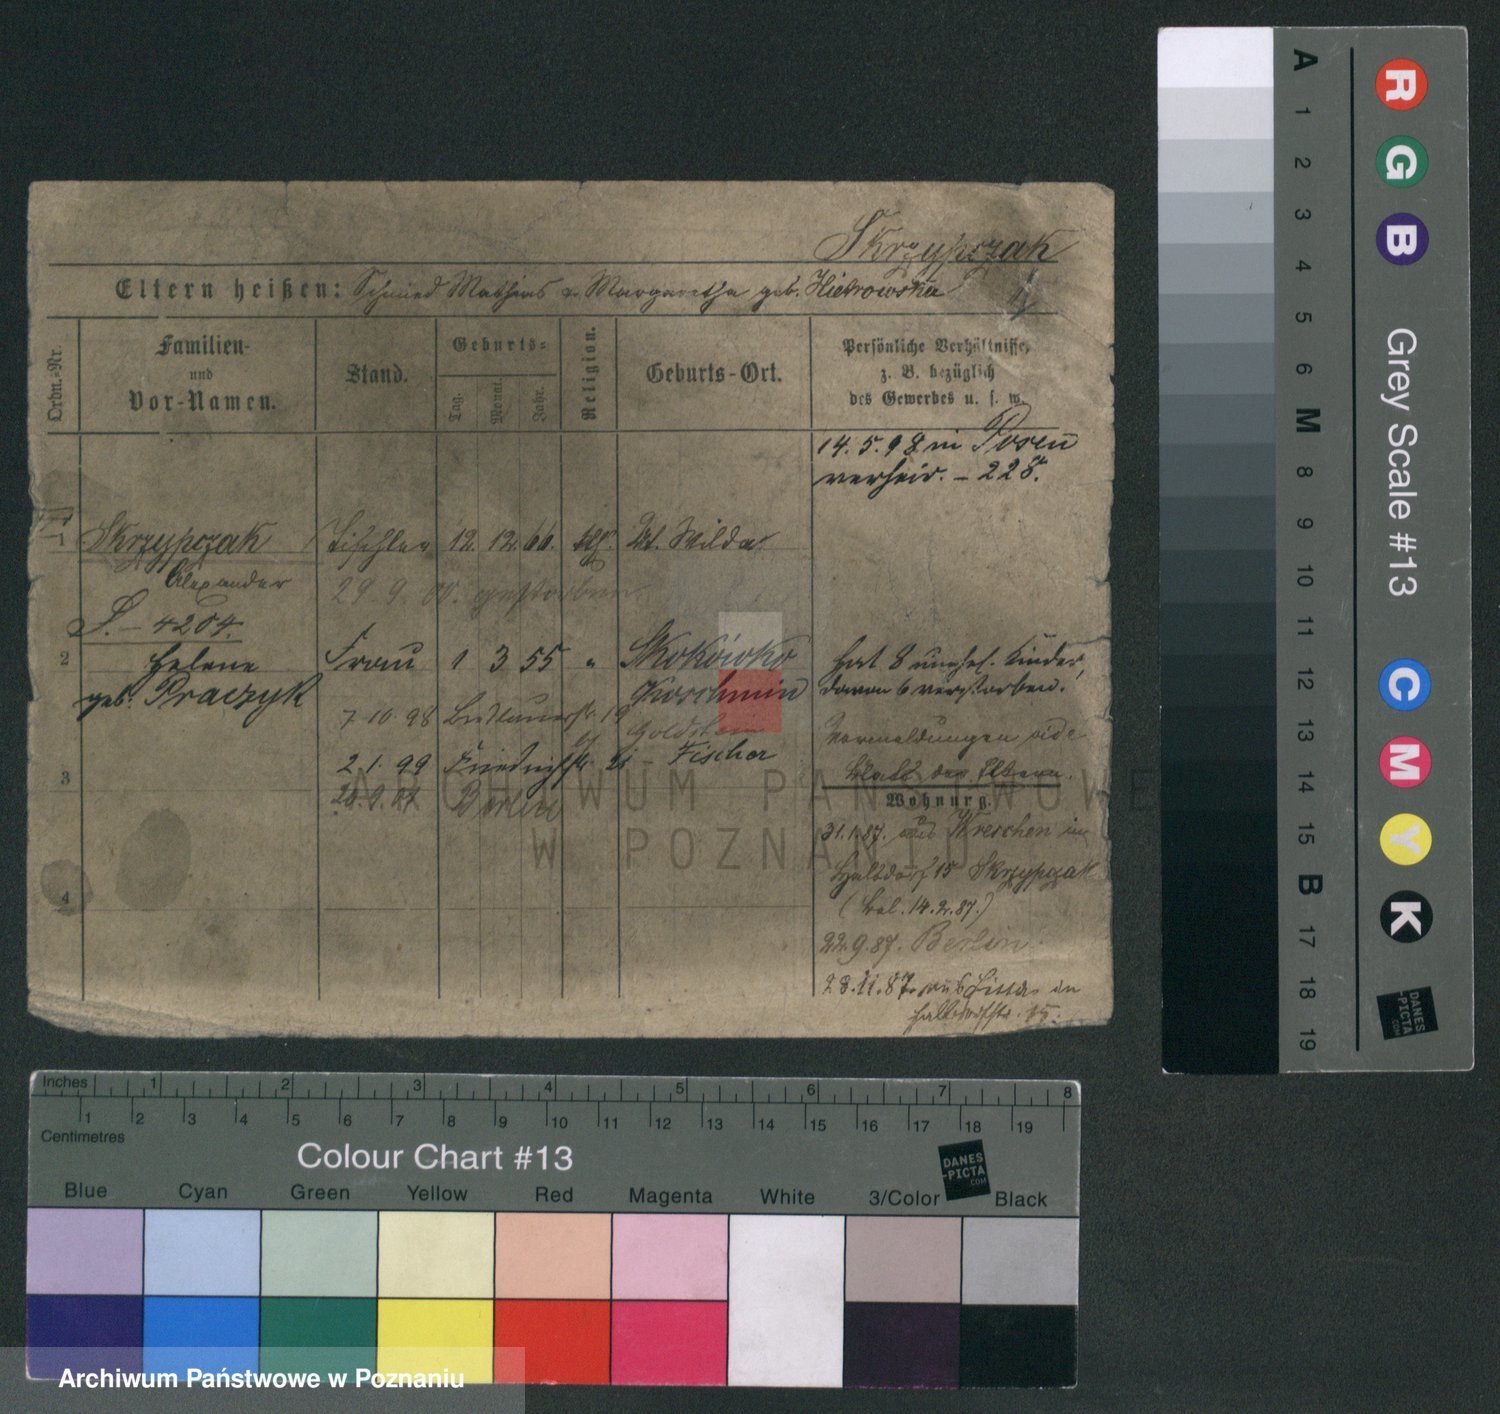 Skrzypczak
Eltern heißen: Schmied Mathias u. Margaretha geb.
Ordn.-Nr.
Familien-
und
Vor-Namen.
Stand.
Geburts-
Tag.
Monat.
Jahr.
Religion.
Geburts-Ort.
Persönliche Verhältnisse,
z. B. bezüglich
des Gewerbes u. s. w.
14. 5. 98 in Posen
verheir. – 228.
1
Skrzypczak
Tischler
12. 12. 66. kth. Wilda
Alexander
29. 9. 00. gestorben
S. – 4204.
2
Helene
Frau
1 3 55 "
geb. Praczyk
Koschmin
hat 8 unehel. Kinder,
davon 6 verstorben.
7. 10. 98 Breslauerstr. 19
Goldstein
Vormeldungen side
Blatt der Eltern.
3
2. 1. 99 Friedrichstr. – Fischer
Berlin
Wohnung.
31.1.87. aus Wreschen in
Halbdorf 15 Skrzypczak
(14.2.87.)
4
22.9.87. Berlin.
28.11.87. aus Lissa in
Halbdorfstr. 15.
ARCHIWUM PAŃSTWOWE
W POZNANIU
R G B
Grey Scale #13
C M Y K
A 1 2 3 4 5 6 M 8 9 10 11 12 13 14 15 B 17 18 19
DANES
-PICTA
.COM
Inches 1 2 3 4 5 6 7 8
1 2 3 4 5 6 7 8 9 10 11 12 13 14 15 16 17 18 19
Centimetres
Colour Chart #13
DANES
-PICTA
.COM
Blue Cyan Green Yellow Red Magenta White 3/Color Black
Archiwum Państwowe w Poznaniu